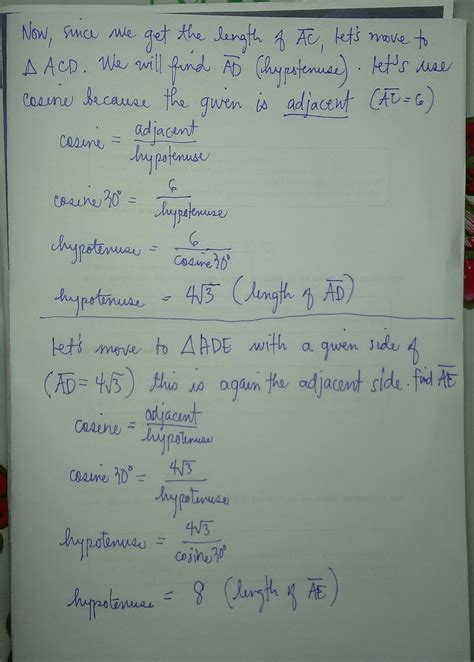 Now, since we get the length of A̅C̅, let's move to
△ ACD. We will find A̅D̅ (hypotenuse). Let's use
cosine because the given is adjacent (A̅C̅ = 6)
cosine = adjacent/hypotenuse
cosine 30° = 6/hypotenuse
hypotenuse = 6/cosine 30°
hypotenuse = 4√3 (length of A̅D̅)
Let's move to △ADE with a given side of
(A̅D̅ = 4√3) this is again the adjacent side. find A̅E̅
cosine = adjacent/hypotenuse
cosine 30° = 4√3/hypotenuse
hypotenuse = 4√3/cosine 30°
hypotenuse = 8 (length of A̅E̅)